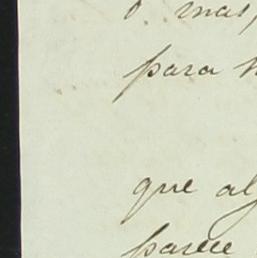 mas,
para
que al
parece